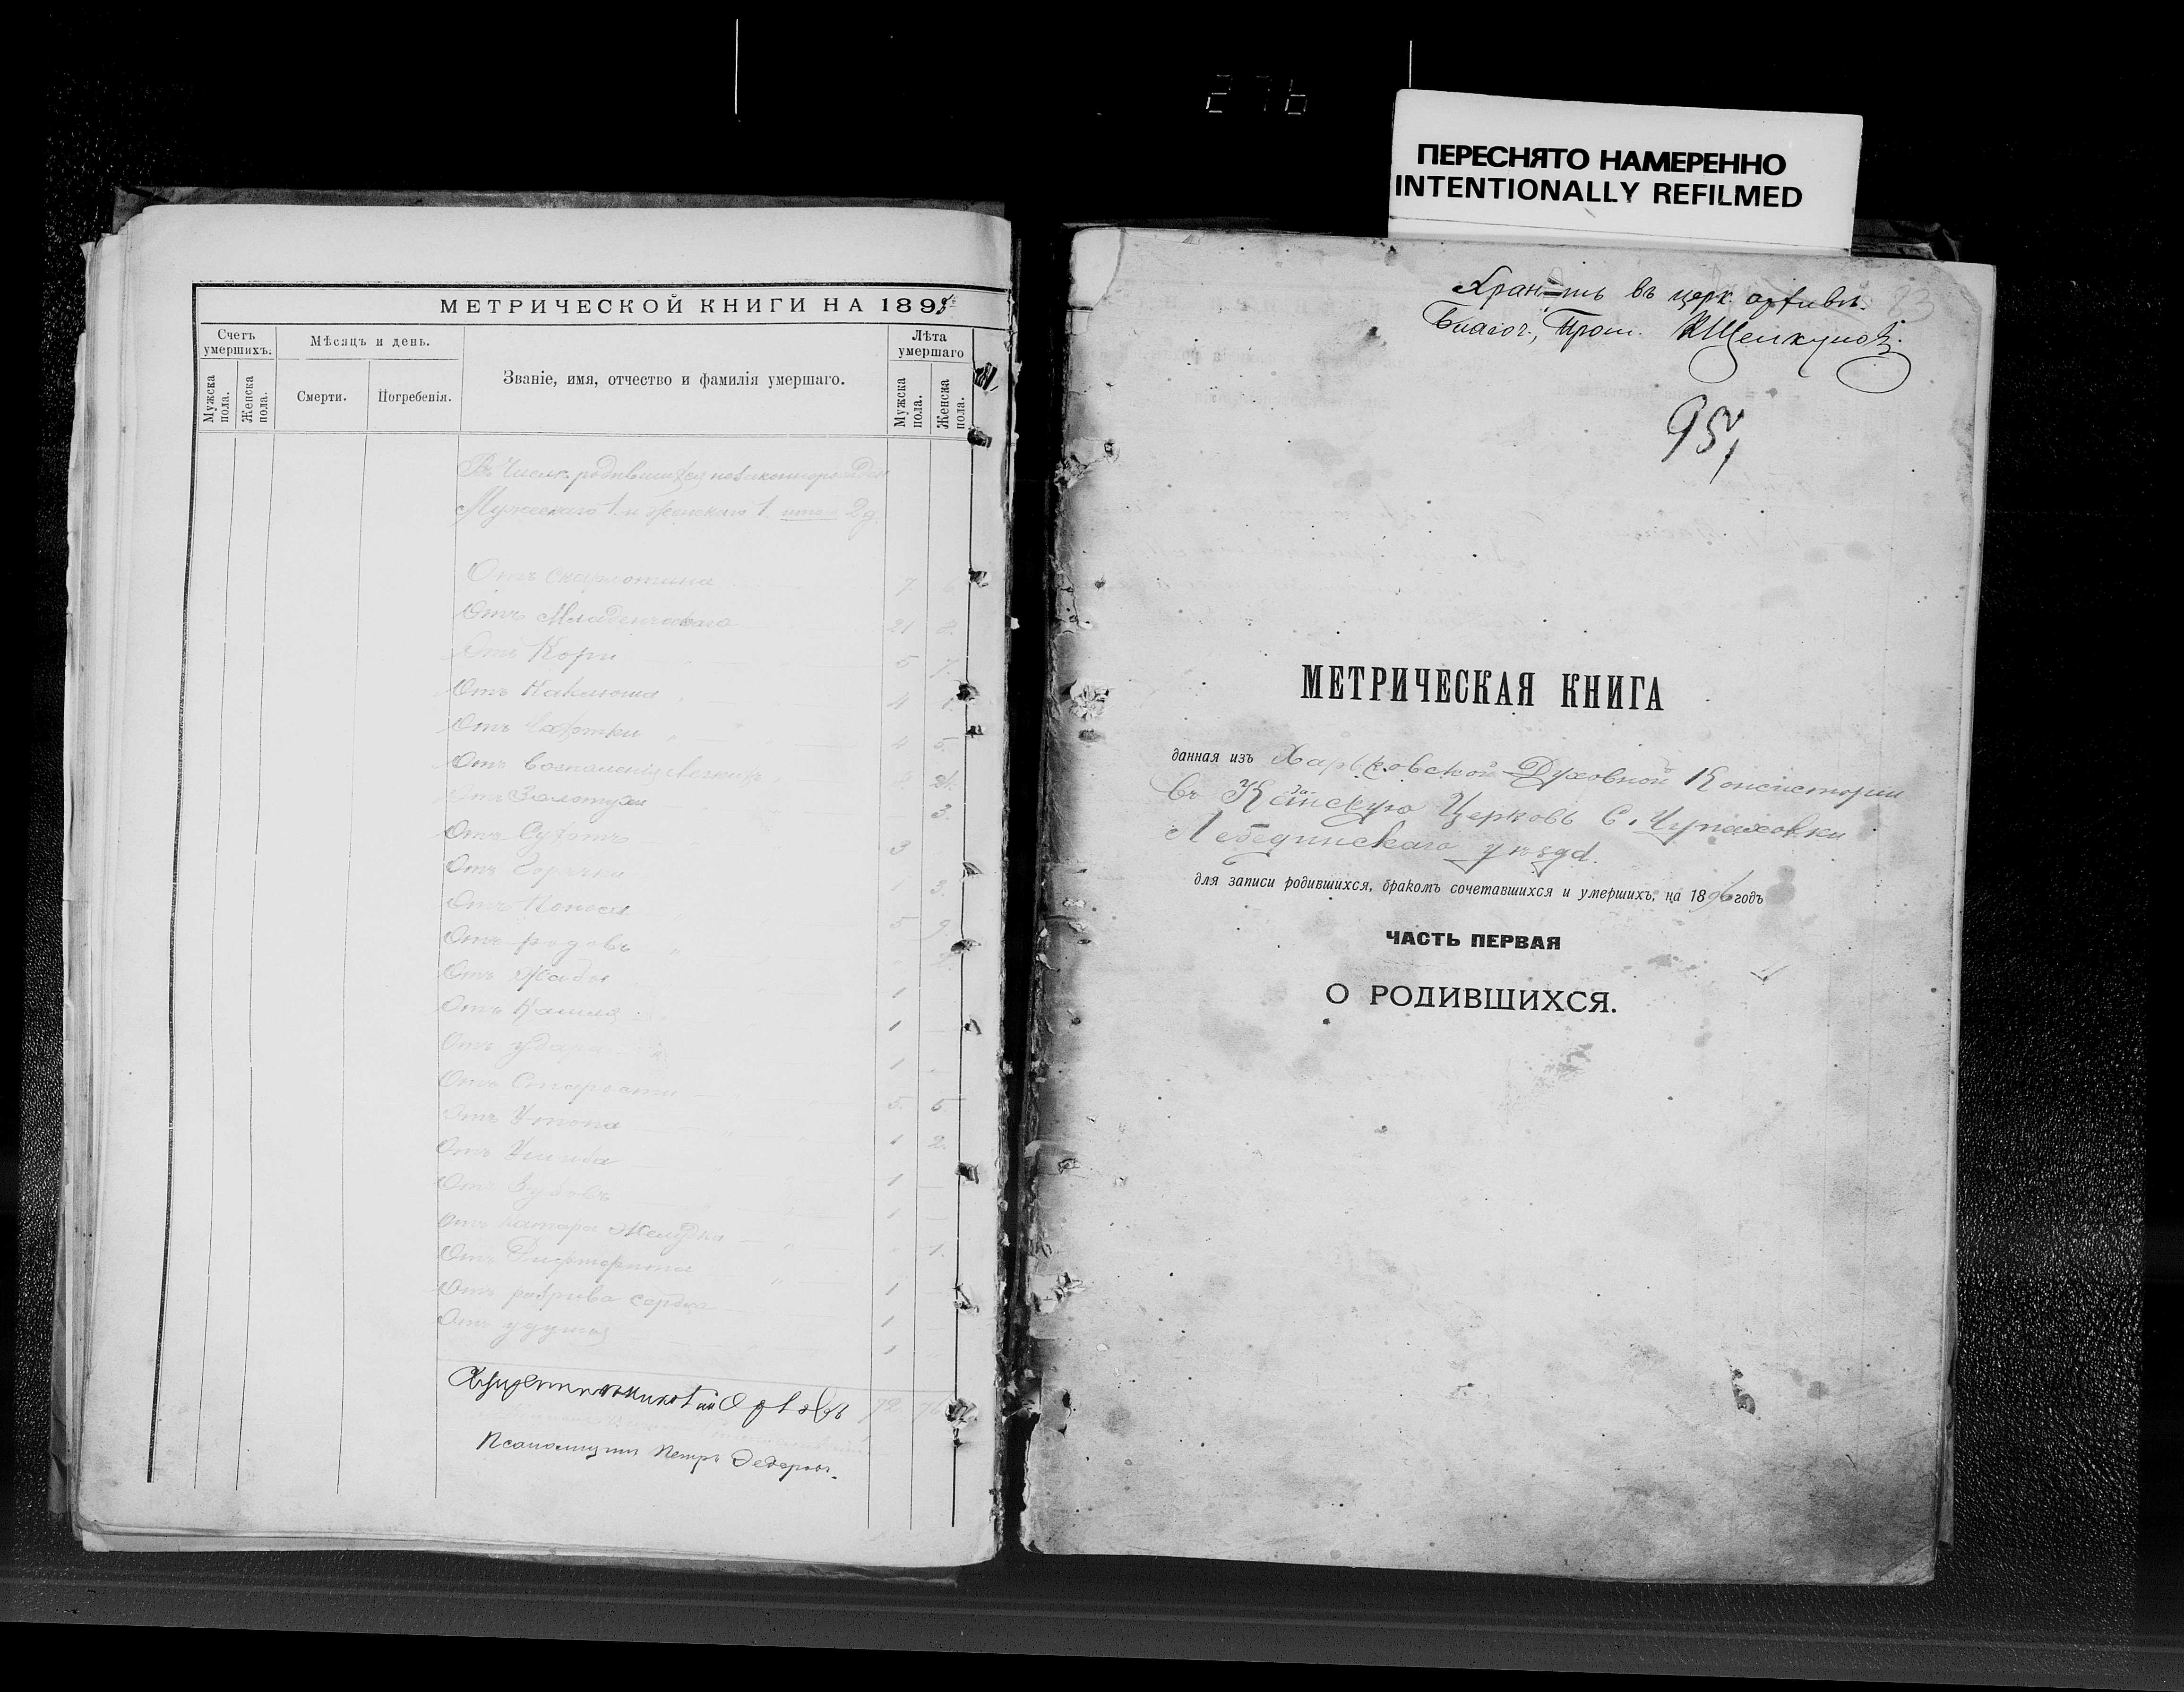 276
ПЕРЕСНЯТО НАМЕРЕННО
INTENTIONALLY REFILMED
МЕТРИЧЕСКОЙ КНИГИ НА 1895
Счетъ умершихъ.
Мѣсяцъ и день.
Званіе, имя, отчество и фамилія умершаго.
Лѣта умершаго
Мужска пола.
Женска пола.
Смерти.
Погребенія.
Мужска пола.
Женска пола.
Въ числѣ родившихся
Мужескаго 1 и женскаго 1 итого 2
Отъ скарлатина 7 6
Отъ Младенческаго 21 8
Отъ Кори 5 7
Отъ Каклюша 4 1
Отъ Чахотки 4 5
Отъ воспаленія легкихъ
Отъ Золотухи 3
Отъ Сухотъ 3
Отъ Горячки 1 3
Отъ Поноса 5 9
Отъ родовъ 2
Отъ Жабы 1
Отъ Кашля 1
Отъ удара 1
Отъ Старости 5 5
Отъ Утопа 1 2
Отъ Ушиба 1
Отъ Зубовъ 1
Отъ катара Желудка 1
Отъ Дифтерита 1
Отъ разрыва сердца 1
Отъ удушья 1
72 76
Псаломщикъ Петръ Федоровъ
Хранить въ церк. архивѣ.
Благоч., Прот. Щелкуновъ.
95
МЕТРИЧЕСКАЯ КНИГА
данная изъ Харьковской Духовной Консисторіи
въ Церковь С. Чупаховки
Лебединскаго уѣзда.
для записи родившихся, бракомъ сочетавшихся и умершихъ, на 1896 годъ
ЧАСТЬ ПЕРВАЯ
О РОДИВШИХСЯ.